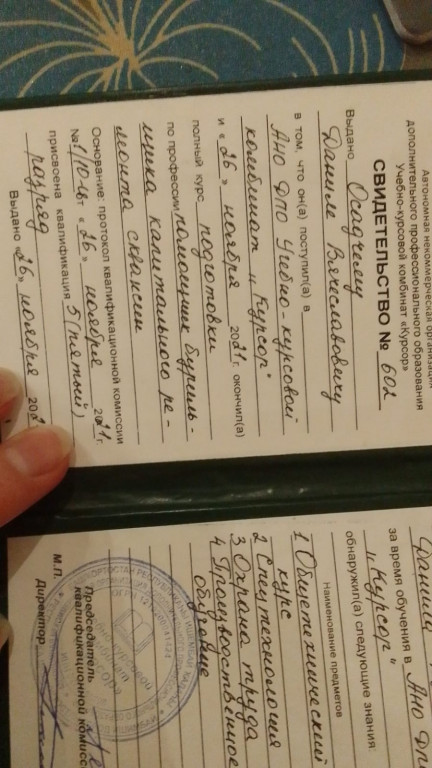 Автономная некоммерческая организация
дополнительного профессионального образования
Учебно-курсовой комбинат «Курсор»
СВИДЕТЕЛЬСТВО № 602
Выдано Осадчему
Даниле Вячеславовичу
в том, что он(а) поступил(а) в
АНО ДПО Учебно-курсовой
комбинат "Курсор"
и «26» ноября 2021г. окончил(а)
полный курс подготовки
по профессии помощник буриль-
щика капитального ре-
монта скважин
Основание: протокол квалификационной комиссии
№ от «26» ноября 2021г.
присвоена квалификация 5 (пятый)
разряд
Выдано «26» ноября 202
за время обучения в АНО ДП
"Курсор"
обнаружил(а) следующие знания:
Наименование предметов
1 Общетехнический
курс
2 Спецтехнология
3 Охрана труда
4 Производственное
обучение
Председатель
квалификационной комисс
М.П.
Директор